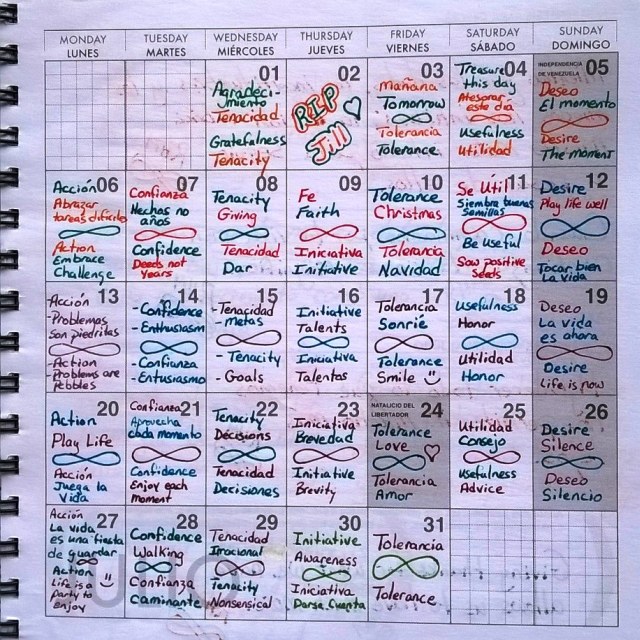 MONDAY TUESDAY WEDNESDAY THURSDAY FRIDAY SATURDAY SUNDAY
LUNES MARTES MIÉRCOLES JUEVES VIERNES SÁBADO DOMINGO
01
Agradeci-
miento
Tenacidad
Gratefulness
Tenacity
02
RIP
Jill
03
Mañana
Tomorrow
Tolerancia
Tolerance
04
Treasure
this day
Atesorar
este día
Usefulness
Utilidad
INDEPENDENCIA
DE VENEZUELA
05
Deseo
El momento
Desire
The moment
06
Acción
Abrazar
tareas difíciles
Action
Embrace
Challenge
07
Confianza
Hechos no
años
Confidence
Deeds not
years
08
Tenacity
Giving
Tenacidad
Dar
09
Fe
Faith
Iniciativa
Initiative
10
Tolerance
Christmas
Tolerancia
Navidad
11
Se Útil
Siembra buenas
Semillas
Be Useful
Sow positive
Seeds
12
Desire
Play life well
Deseo
Tocar bien
La vida
13
Acción
-Problemas
Son piedritas
-Action
-Problems are
Pebbles
14
-Confidence
-Enthusiasm
-Confianza
-Entusiasmo
15
-Tenacidad
-metas
-Tenacity
-Goals
16
Initiative
Talents
Iniciativa
Talentos
17
Tolerancia
Sonríe
Tolerance
Smile
18
Usefulness
Honor
Utilidad
Honor
19
Deseo
La vida
es ahora
Desire
Life is now
20
Action
Play Life
Acción
Juega la
Vida
21
Confianza
Aprovecha
cada momento
Confidence
Enjoy each
Moment
22
Tenacity
Decisions
Tenacidad
Decisiones
23
Iniciativa
Brevedad
Initiative
Brevity
NATALICIO DEL
LIBERTADOR
24
Tolerance
Love
Tolerancia
Amor
25
Utilidad
Consejo
Usefulness
Advice
26
Desire
Silence
Deseo
Silencio
27
Acción
La vida
es una fiesta
de guardar
Action
Life is a
party to
enjoy
28
Confidence
Walking
Confianza
Caminante
29
Tenacidad
Irracional
Tenacity
Nonsensical
30
Initiative
Awareness
Iniciativa
Darse Cuenta
31
Tolerancia
Tolerance